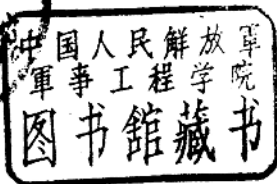 中国人民解放軍
軍事工程学院
图书舘藏书